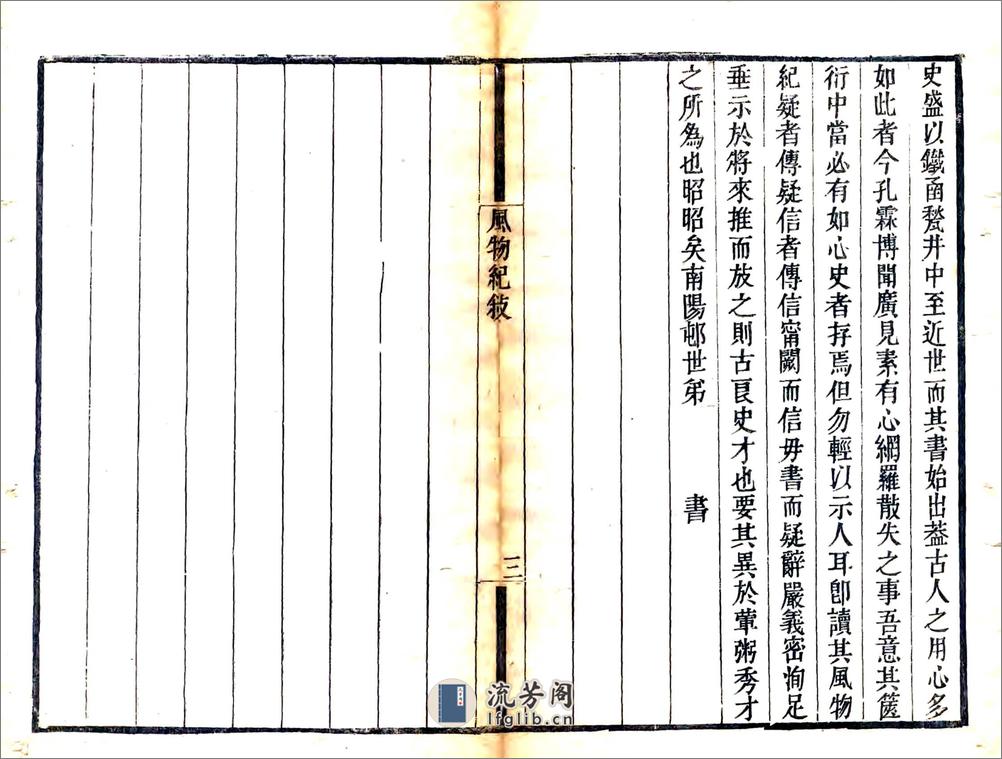 史盛以鐵函甃井中至近世而其書始出葢古人之用心多
如此者今孔霖博聞廣見素有心網羅散失之事吾意其篋
衍中當必有如心史者存焉但勿輕以示人耳卽讀其風物
紀疑者傳疑信者傳信甯闕而信毋書而疑辭嚴義密洵足
垂示於將來推而放之則古良史才也要其異於葷粥秀才
之所為也昭昭矣南陽邨世弟　　書
風物紀敍
三
流芳阁
lfglib.cn